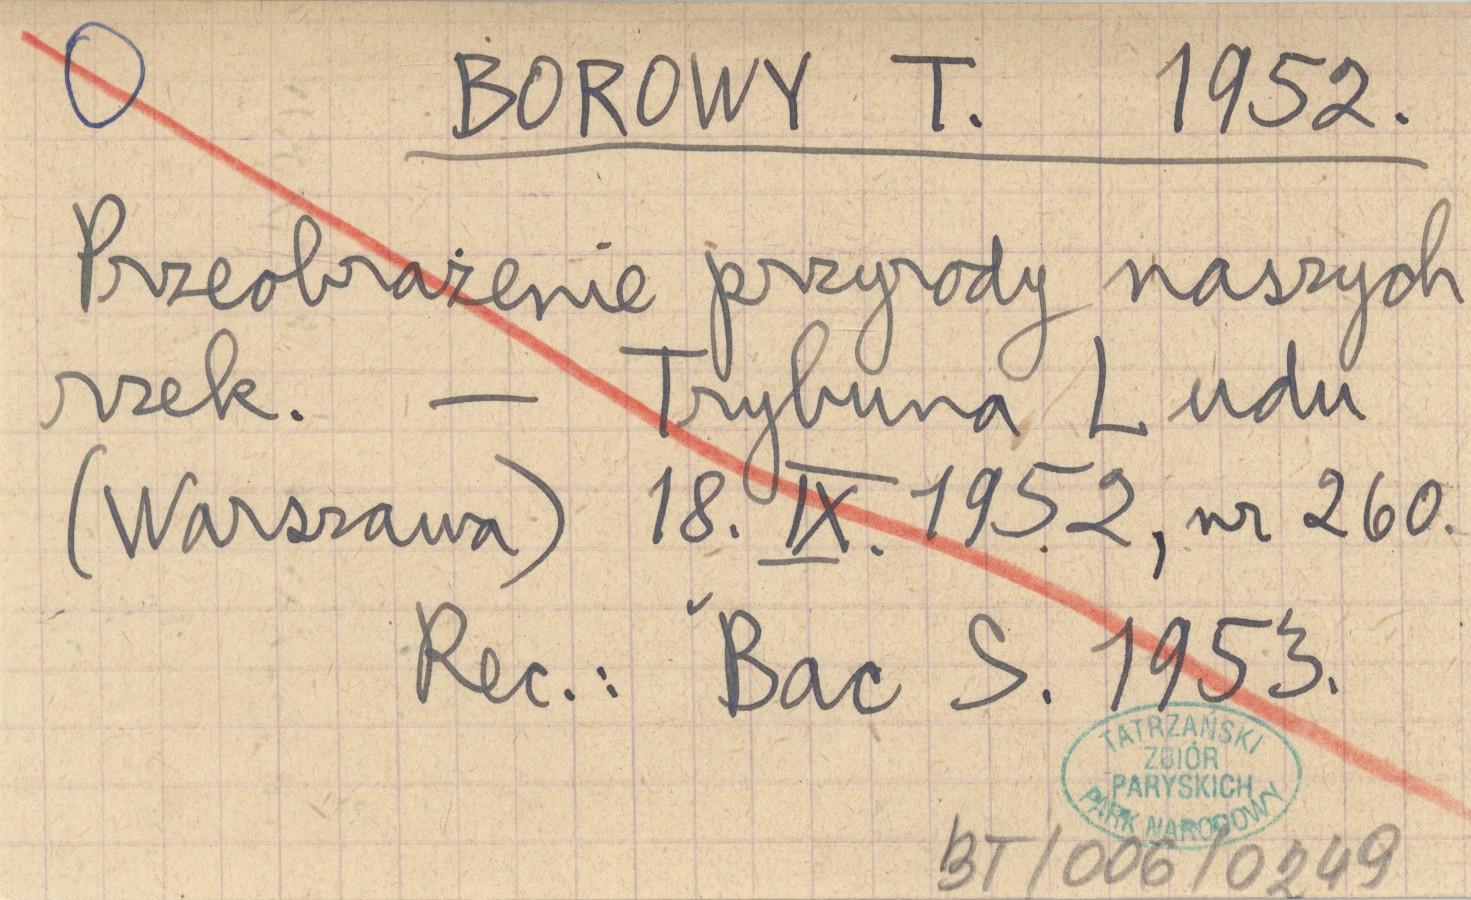 BOROWY T. 1952.
Przeobrażenie przyrody naszych
rzek. — Trybuna Ludu
(Warszawa) 18. IX. 1952, nr 260.
Rec.: ˇBac S. 1953.
TATRZAŃSKI
ZBIÓR
PARYSKICH
PARK NARODOWY
BT/006/0249